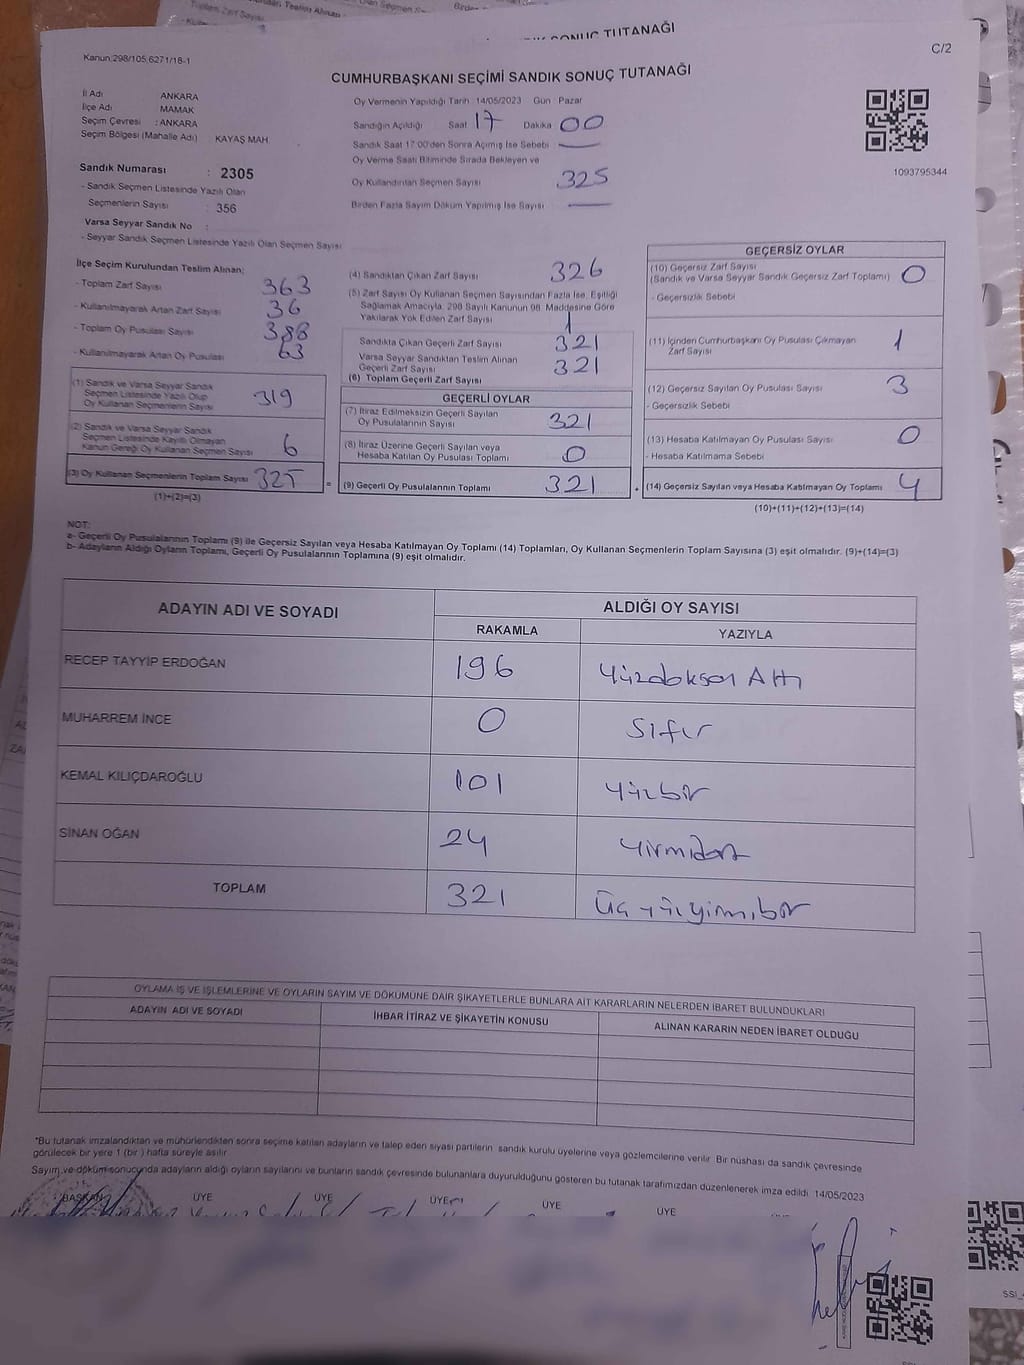 SONUÇ TUTANAĞI
Kanun:298/105,6271/18-1
C/2
CUMHURBAŞKANI SEÇİMİ SANDIK SONUÇ TUTANAĞI
İl Adı ANKARA
İlçe Adı MAMAK
Seçim Çevresi : ANKARA
Seçim Bölgesi (Mahalle Adı) KAYAŞ MAH
Sandık Numarası : 2305
- Sandık Seçmen Listesinde Yazılı Olan
Seçmenlerin Sayısı : 356
Varsa Seyyar Sandık No :
- Seyyar Sandık Seçmen Listesinde Yazılı Olan Seçmen Sayısı
Oy Vermenin Yapıldığı Tarih 14/05/2023 Gün : Pazar
Sandığın Açıldığı Saat 17 Dakika 00
Sandık Saat 17:00'den Sonra Açmış İse Sebebi —
Oy Verme Saati Bitiminde Sırada Bekleyen ve
Oy Kullandırılan Seçmen Sayısı 325
Birden Fazla Sayım Döküm Yapılmış İse Sayısı —
1093795344
İlçe Seçim Kurulundan Teslim Alınan;
- Toplam Zarf Sayısı 363
- Kullanılmayarak Artan Zarf Sayısı 36
- Toplam Oy Pusulası Sayısı 388
- Kullanılmayarak Artan Oy Pusulası 63
(1) Sandık ve Varsa Seyyar Sandık
Seçmen Listesinde Yazılı Olup
Oy Kullanan Seçmenlerin Sayısı 319
(2) Sandık ve Varsa Seyyar Sandık
Seçmen Listesinde Kayıtlı Olmayan
Kanun Gereği Oy Kullanan Seçmen Sayısı 6
(3) Oy Kullanan Seçmenlerin Toplam Sayısı 325
(1)+(2)=(3)
(4) Sandıktan Çıkan Zarf Sayısı 326
(5) Zarf Sayısı Oy Kullanan Seçmen Sayısından Fazla İse, Eşitliği
Sağlamak Amacıyla, 298 Sayılı Kanunun 98. Maddesine Göre
Yakılarak Yok Edilen Zarf Sayısı 1
Sandıkta Çıkan Geçerli Zarf Sayısı 321
Varsa Seyyar Sandıktan Teslim Alınan
Geçerli Zarf Sayısı 321
(6) Toplam Geçerli Zarf Sayısı
GEÇERLİ OYLAR
(7) İtiraz Edilmeksizin Geçerli Sayılan
Oy Pusulalarının Sayısı 321
(8) İtiraz Üzerine Geçerli Sayılan veya
Hesaba Katılan Oy Pusulası Toplamı 0
= (9) Geçerli Oy Pusulalarının Toplamı 321
GEÇERSİZ OYLAR
(10) Geçersiz Zarf Sayısı
(Sandık ve Varsa Seyyar Sandık Geçersiz Zarf Toplamı) 0
- Geçersizlik Sebebi
(11) İçinden Cumhurbaşkanı Oy Pusulası Çıkmayan
Zarf Sayısı 1
(12) Geçersiz Sayılan Oy Pusulası Sayısı 3
- Geçersizlik Sebebi
(13) Hesaba Katılmayan Oy Pusulası Sayısı 0
- Hesaba Katılmama Sebebi
+ (14) Geçersiz Sayılan veya Hesaba Katılmayan Oy Toplamı 4
(10)+(11)+(12)+(13)=(14)
NOT:
a- Geçerli Oy Pusulalarının Toplamı (9) ile Geçersiz Sayılan veya Hesaba Katılmayan Oy Toplamı (14) Toplamları, Oy Kullanan Seçmenlerin Toplam Sayısına (3) eşit olmalıdır. (9)+(14)=(3)
b- Adayların Aldığı Oyların Toplamı, Geçerli Oy Pusulalarının Toplamına (9) eşit olmalıdır.
ADAYIN ADI VE SOYADI ALDIĞI OY SAYISI
RAKAMLA YAZIYLA
RECEP TAYYİP ERDOĞAN 196 Yüzdoksan Altı
MUHARREM İNCE 0 Sıfır
KEMAL KILIÇDAROĞLU 101 Yüzbir
SİNAN OĞAN 24 Yirmidört
TOPLAM 321 Üçyüzyirmibir
OYLAMA İŞ VE İŞLEMLERİNE VE OYLARIN SAYIM VE DÖKÜMÜNE DAİR ŞİKAYETLERLE BUNLARA AİT KARARLARIN NELERDEN İBARET BULUNDUKLARI
ADAYIN ADI VE SOYADI İHBAR İTİRAZ VE ŞİKAYETİN KONUSU ALINAN KARARIN NEDEN İBARET OLDUĞU
*Bu tutanak imzalandıktan ve mühürlendikten sonra seçime katılan adayların ve talep eden siyasi partilerin sandık kurulu üyelerine veya gözlemcilerine verilir. Bir nüshası da sandık çevresinde
görülecek bir yere 1 (bir) hafta süreyle asılır
Sayım ve döküm sonucunda adayların aldığı oyların sayılarını ve bunların sandık çevresinde bulunanlara duyurulduğunu gösteren bu tutanak tarafımızdan düzenlenerek imza edildi. 14/05/2023
BAŞKAN ÜYE ÜYE ÜYE ÜYE ÜYE